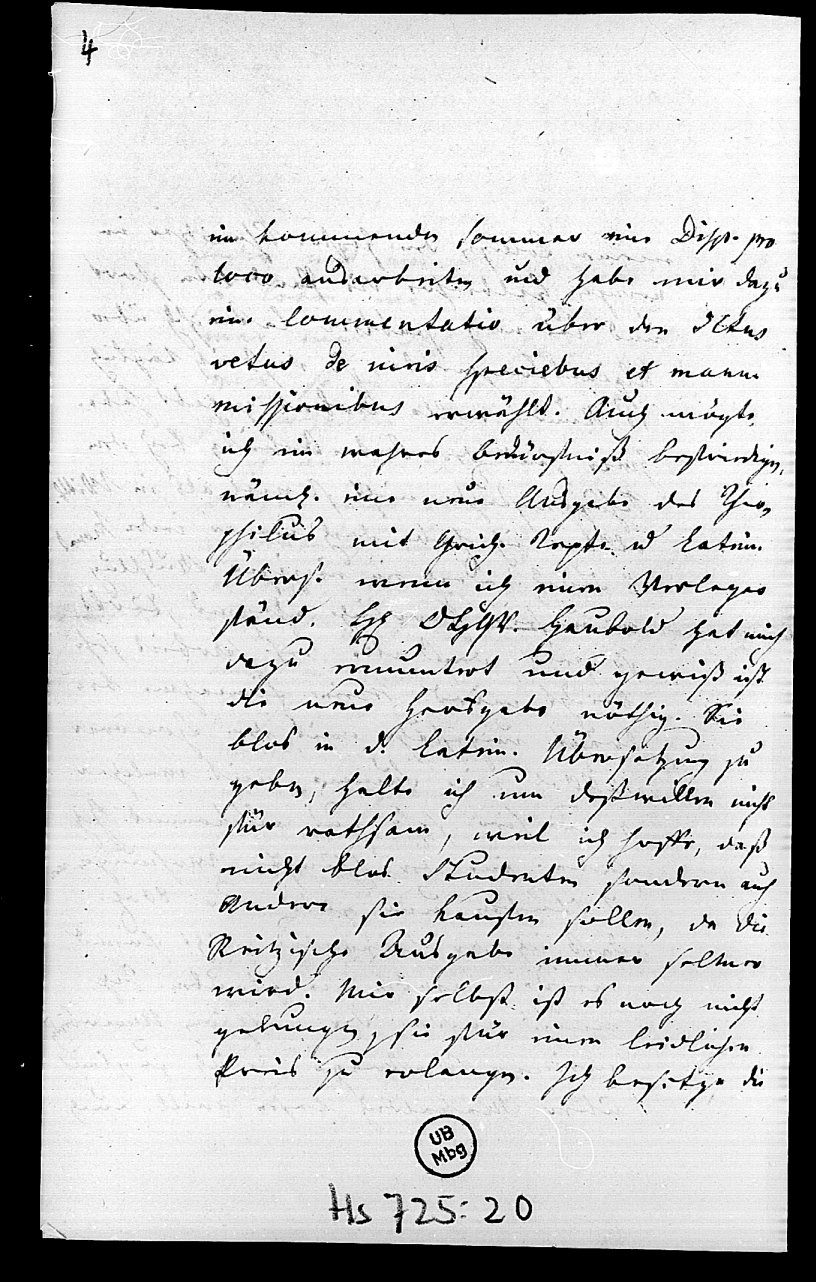 4
im kommenden Sommer eine Disp. pro
loco ausarbeiten und habe mir dazu
eine Commentatio über den JCtus
vetus de iuris speciebus et manu-
missionibus erwählt. Auch mögte
ich ein wahres Bedürfniß befriedigen,
nämlich eine neue Ausgabe des Theo-
philus mit Griech. Texte und Latein.
Übers. wenn ich einen Verleger
fänd. Haubold hat mich
dazu ermuntert und gewiß ist
die neue Herausgabe nöthig. Sie
blos in d. Latein. Übersetzung zu
geben, halte ich um deßwillen nicht
für rathsam, weil ich hoffe, daß
nicht blos Studenten sondern auch
Andere sie kaufen sollen, da die
Reitzische Ausgabe immer seltner
wird. Mir selbst ist es noch nicht
gelungen, sie für einen leidlichen
Preis zu erlangen. Ich besitze die
UB
Mbg
Hs 725:20